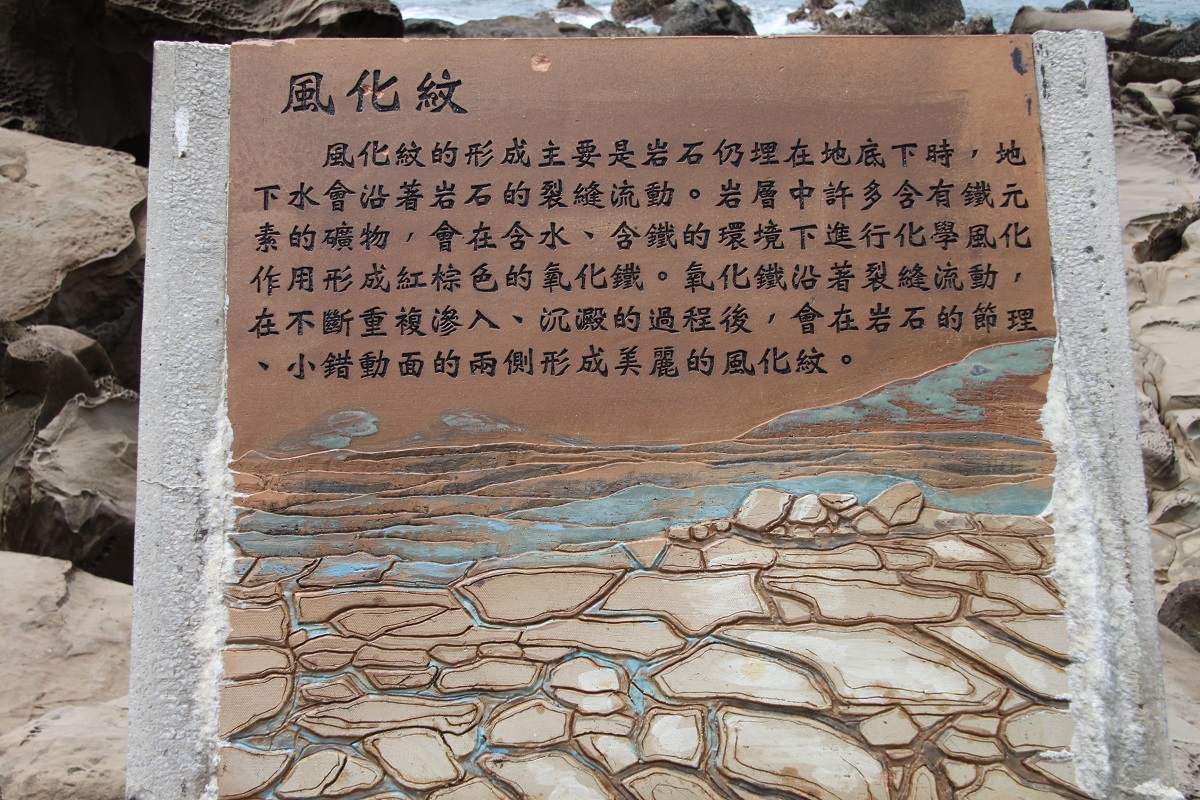 風化紋
風化紋的形成主要是岩石仍埋在地底下時，地
下水會沿著岩石的裂縫流動。岩層中許多含有鐵元
素的礦物，會在含水、含鐵的環境下進行化學風化
作用形成紅棕色的氧化鐵。氧化鐵沿著裂縫流動，
在不斷重複滲入、沉澱的過程後，會在岩石的節理
、小錯動面的兩側形成美麗的風化紋。